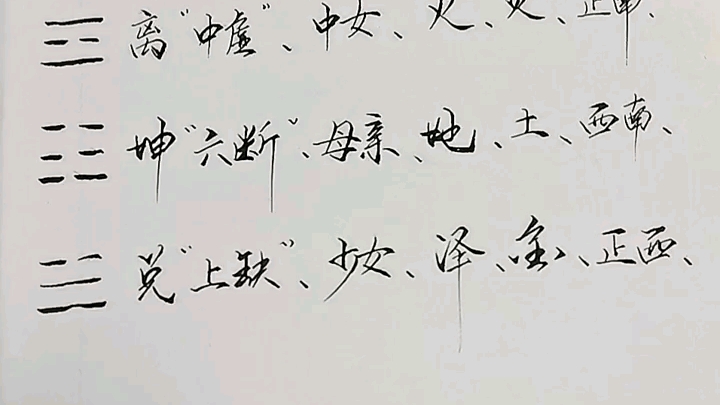 离“中虚”、中女、火、火、正南、
坤“六断”、母亲、地、土、西南、
兑“上缺”、少女、泽、金、正西、